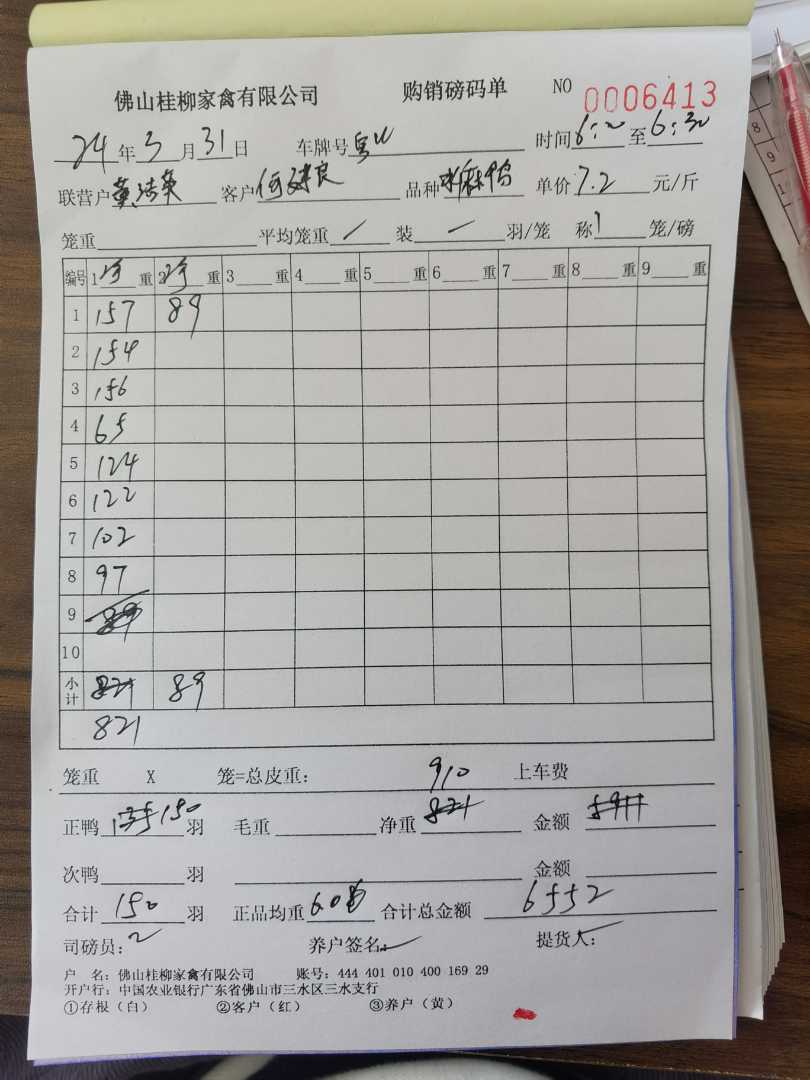 佛山桂柳家禽有限公司 购销磅码单 NO 0006413
24年3月31日 车牌号粤W 时间6:20至6:30
联营户黄洁英 客户何建良 品种水麻鸭 单价7.2元/斤
笼重 平均笼重/ 装一羽/笼 称1笼/磅
编号 1 重 2 重 3 重 4 重 5 重 6 重 7 重 8 重 9 重
1 157 89
2 154
3 156
4 65
5 124
6 122
7 102
8 97
9 89
10
小计 821 89
821
笼重 X 笼=总皮重: 910 上车费
正鸭 150羽 毛重 净重821 金额5911
次鸭 羽 金额
合计150羽 正品均重6.0 合计总金额6552
司磅员: 养户签名: 提货人:
户 名: 佛山桂柳家禽有限公司 账号: 444 401 010 400 169 29
开户行: 中国农业银行广东省佛山市三水区三水支行
①存根(白) ②客户(红) ③养户(黄)
8
9